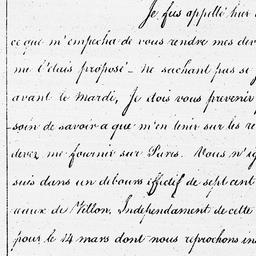 Je fus appellé hier
ce que m'empecha de vous rendre mes der
me l'étais proposé - ne sachant pas se j
avant le Mardi, Je dois vous prevenir
soin de savoir a que m'en tenir sur les re
devez me fournir sur Paris. Vous n'ig
suis dans un debours effectif de sept cent
aux de Millon, Independament de cette
pour le 14 mars dont nous reprochons in